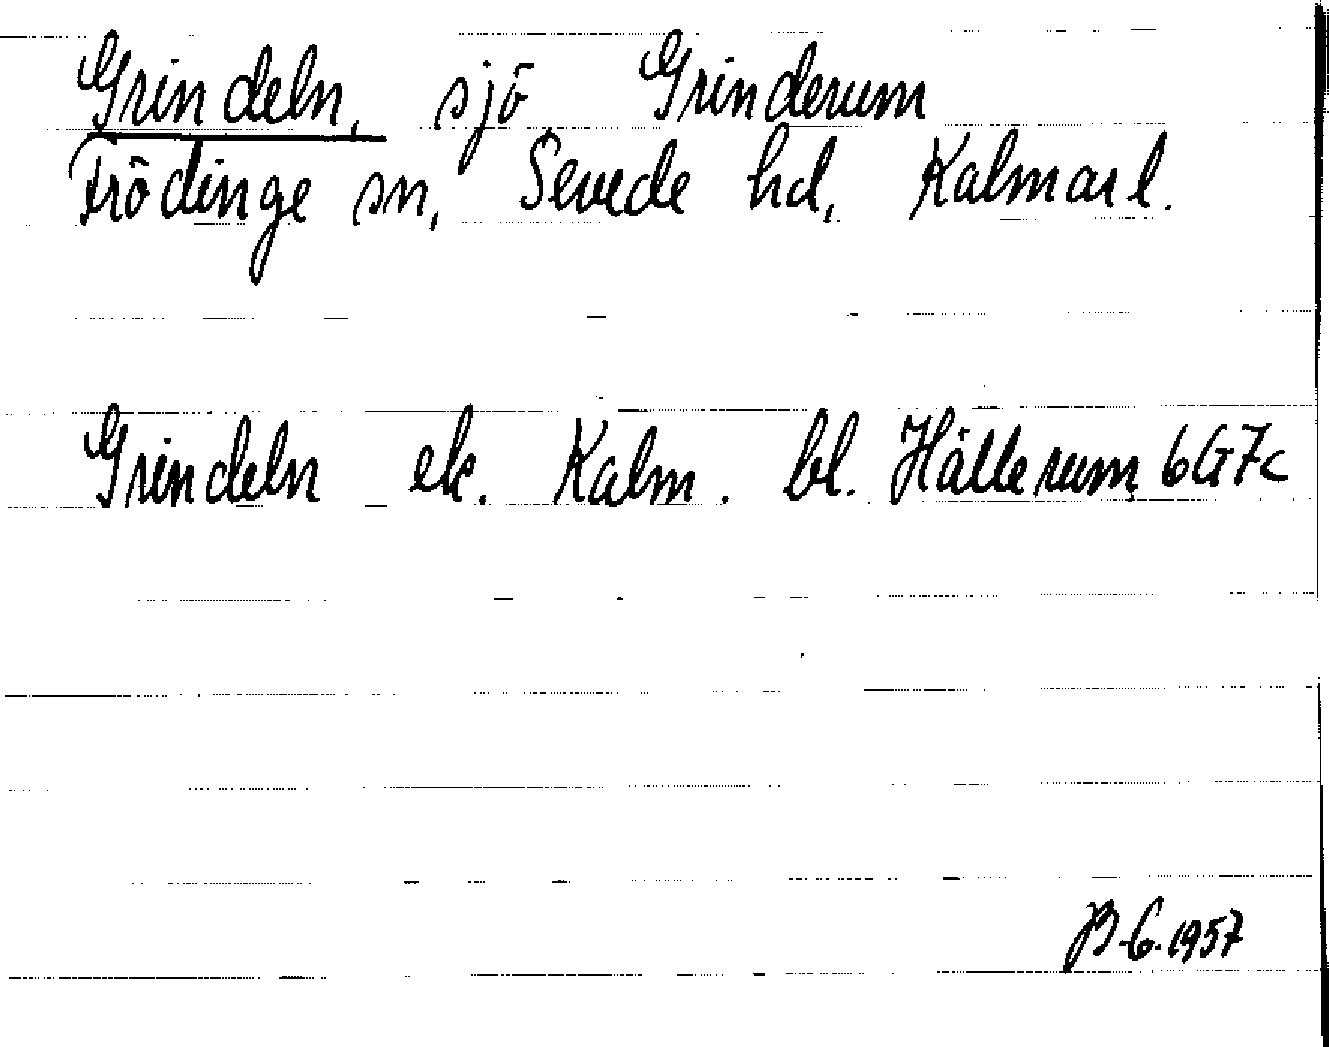 Grindeln, sjö, Grinderum
Frödinge sn, Sevede hd, Kalmar l.
Grindeln ek. Kalm. bl. Hällerum 6G7c
1957